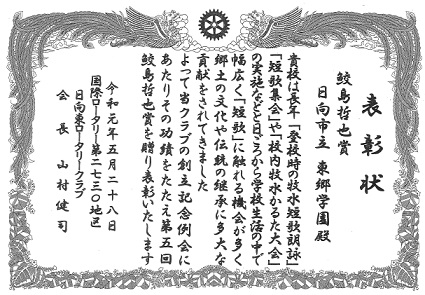 表彰状
鮫島哲也賞
日向市立 東郷学園殿
貴校は長年「登校時の牧水短歌朗詠」
「短歌集会」や「校内牧水かるた大会」
の実施などと日ごろから学校生活の中で
幅広く「短歌」に触れる機会が多く
郷土の文化や伝統の継承に多大な
貢献をされてきました
よって当クラブの創立記念例会に
あたりその功績をたたえ第五回
鮫島哲也賞を贈り表彰いたします
令和元年五月二十八日
国際ロータリー第二七三〇地区
日向東ロータリークラブ
会長 山村健司